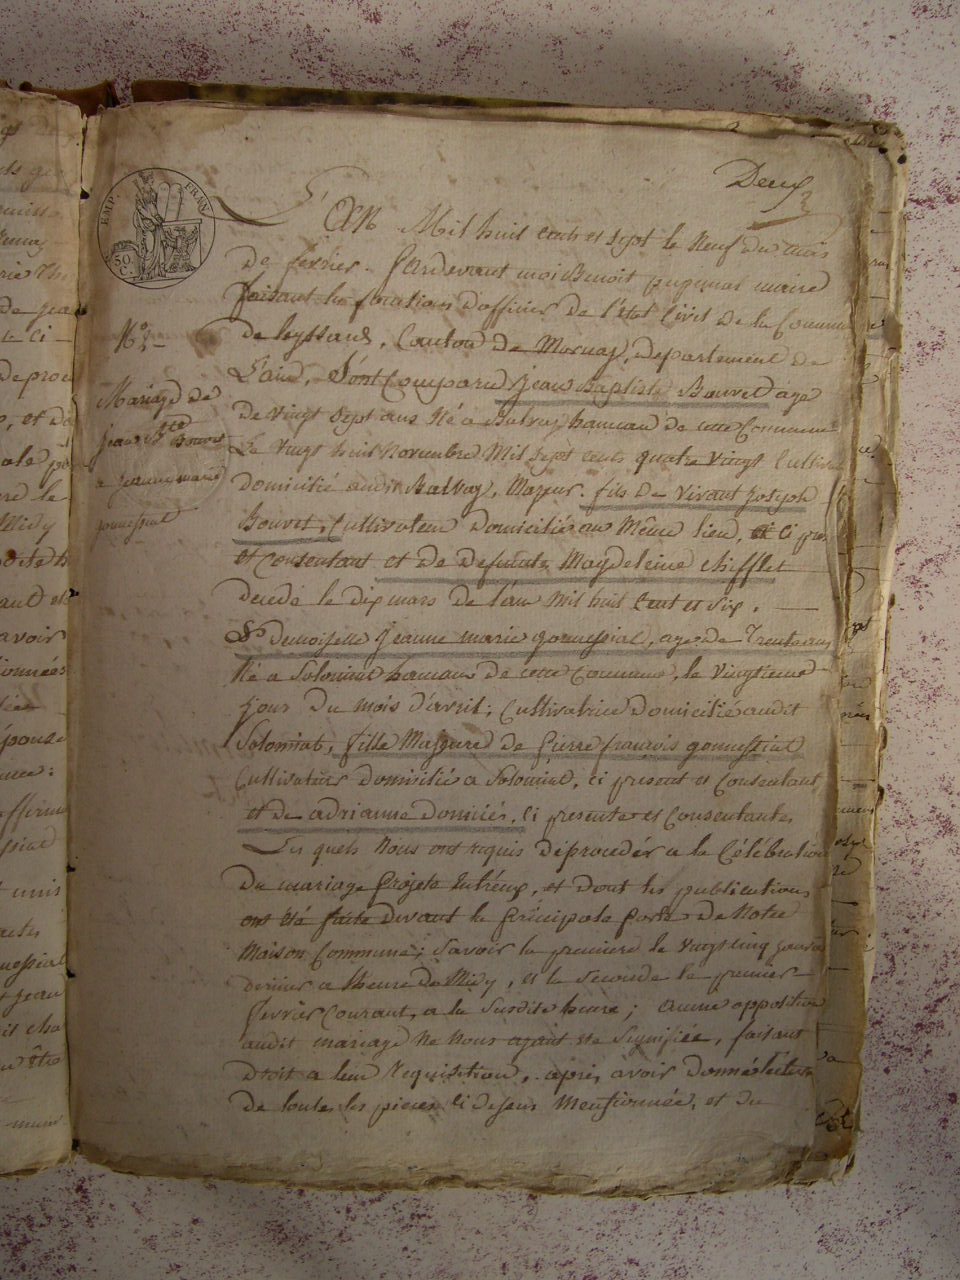 Deux
EMP. FRAN.
50 C.
L'AN Mil huit cents et sept le Neuf du mois
De fevrier. Pardevant moi Benoit maire
faisant les fonctions d'officier de l'état Civil De la Commune
de leyssard, Canton De Mornay, departement de
L'ain, Sont Comparu Jean Baptiste Bouvet agé
De Vingt Sept ans Né a Balvay hameau de cette Commune
Le Vingt huit Novembre Mil Sept Cents quatre Vingt Cultiva
domicilié audit Balvay, Majeur. fils De Vivant Joseph
Bouvet, Cultivateur Domicilié au Même lieu, ci pres
et Consentant et de defunte Magdeleine chifflet
Decede le dix mars de l'an Mil huit Cent et Six.
Jeanne marie gomessiat, agé de Trente ans
Né a Solomiat hameau de cette Commune, le Vingtieme
Jour Du Mois d'avril, Cultivatrice Domicilié audit
Solomiat, fille Majeure de Pierre françois gomessiat
Cultivateur Domicilié a Solomiat, ci present et Consentant
et de adrianne ci presente et Consentante,
Les quels Nous ont requis De procedér a la Célébration
Du mariage projete entre eux, et dont les publications
ont été faite Devant la principale porte De Notre
Maison Commune; Savoir la premiere le Vingt Cinq Janvier
dernier a lheure de Midy, et la Seconde le premier
Fevrier Courant, a la Susdite heure; aucune opposition
audit mariage Ne Nous ayant été Signifiée, faisant
Droit a leur Requisition, après avoir donné lecture
De toutes les pieces ci dessus Mentionnée, et du
N°. 2
Mariage de
Jean Bte Bouvet
a Jeanne marie
gomessiat